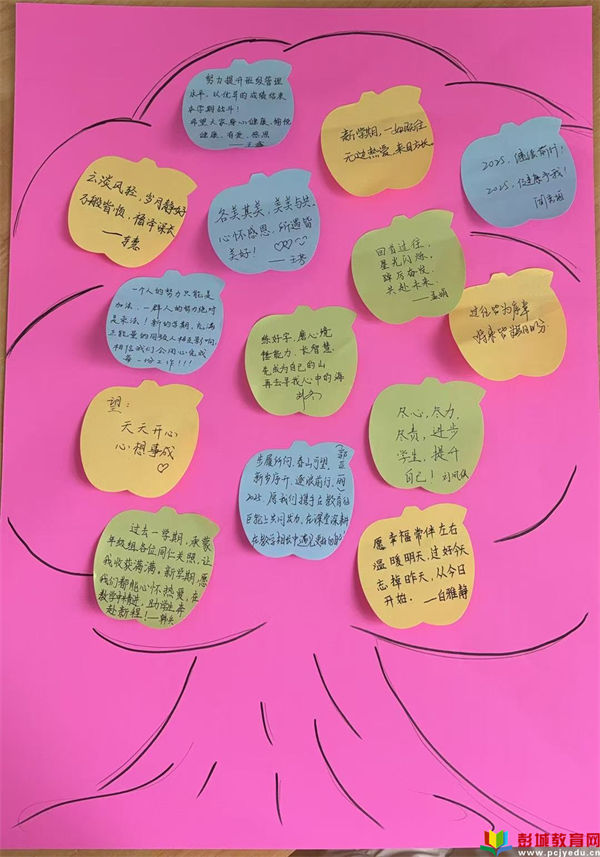 努力提升班级管理
水平,以优异的成绩结束
本学期战斗!
希望大家身心健康、愉悦
健康、有爱、感恩
新学期,一如既往
无过热爱,来日方长
2025,继续前行!
2025,健康予我!
云淡风轻,岁月静好
万般皆悦,福泽深衣
各美其美,美美与共
心怀感恩,所遇皆
美好!
回首过往,
星光闪烁
踔厉奋发,
共赴未来
一个人的努力只能是
加法,一群人的努力绝对
是乘法!新的学期,充满
正能量的同极人相互影响,
相信我们会用心完成
每一份工作!!!
练好字,磨心境
懂能力,长智慧
先成为自己的山
再去寻找心中的海
过往皆为序章
将来皆
望:
天天开心
心想事成
尽心,尽力,
尽责,进步
学生,提升
自己!
步履所向,春山可望
新岁序开,逐浪前行
2025,愿我们携手在教育的
巨轮上共同发力,在课堂深耕
在教学相长中遇见更好的自己!
过去一学期,承蒙
年级组各位同仁关照,让
我收获满满。新学期,愿
我们都能心怀热爱,在
教学中精进,助学生奔
赴新程!
愿幸福常伴左右
温暖明天,过好今天
忘掉昨天,从今日
开始. —白雅静
彭城教育网
www.pcjyedu.cn